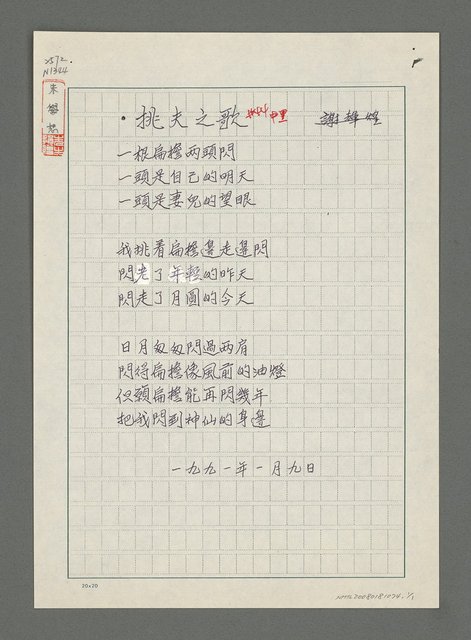 2572.
N1324
・挑夫之歌
謝輝煌
一根扁擔兩頭閃
一頭是自己的明天
一頭是妻兒的望眼
我挑着扁擔邊走邊閃
閃老了年輕的昨天
閃走了月圓的今天
日月匆匆閃過兩肩
閃得扁擔像風前的油燈
但願扁擔能再閃幾年
把我閃到神仙的身邊
一九九一年一月九日
20×20
NMTL20080181074. 1/1